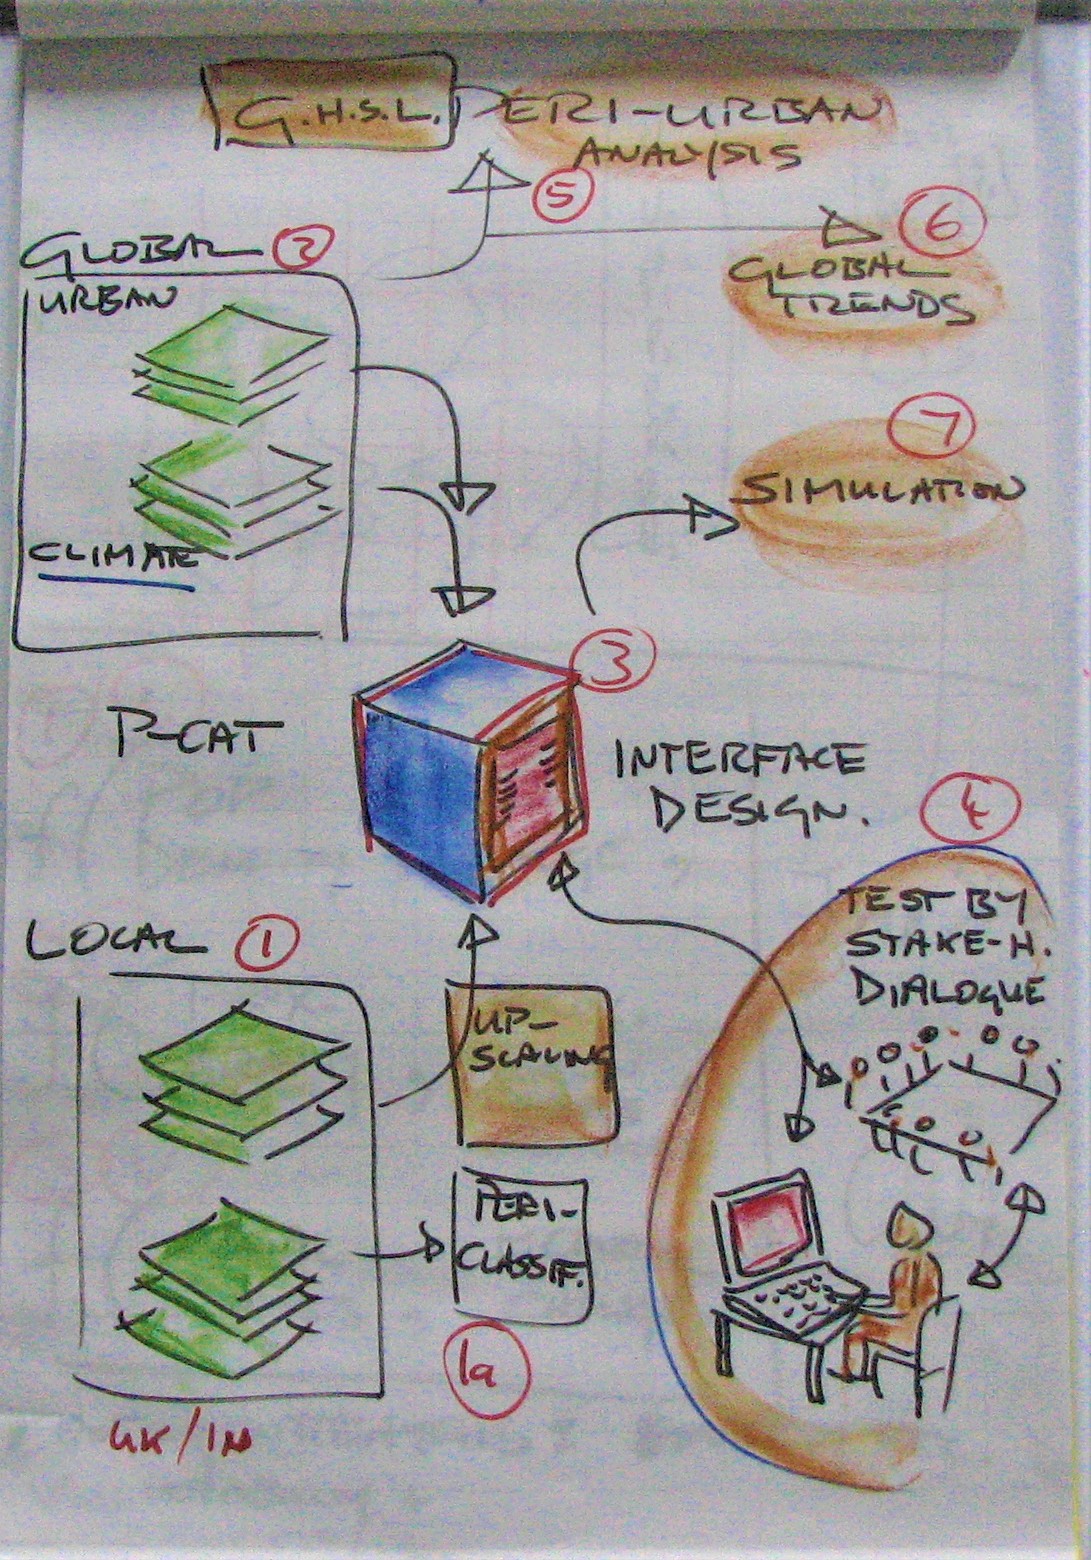 G.H.S.L. PERI-URBAN
ANALYSIS
5
6
GLOBAL 2
URBAN
GLOBAL
TRENDS
7
SIMULATION
CLIMATE
3
P-CAT
INTERFACE
DESIGN.
4
TEST BY
STAKE-H.
DIALOGUE
LOCAL 1
UP-
SCALING
PERI-
CLASSIF.
1a
UK/IN